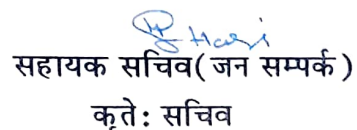 सहायक सचिव( जन सम्पर्क )
कृते: सचिव